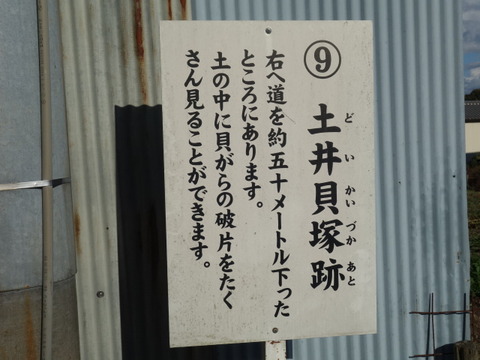 ⑨
土井貝塚跡
どいかいづかあと
右へ道を約五十メートル下った
ところにあります。
土の中に貝がらの破片をたく
さん見ることができます。